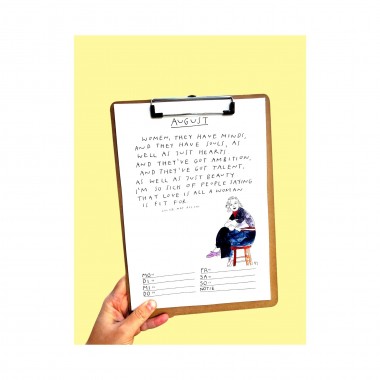 AUGUST
WOMEN, THEY HAVE MINDS,
AND THEY HAVE SOULS, AS
WELL AS JUST HEARTS
AND THEY'VE GOT AMBITION,
AND THEY'VE GOT TALENT,
AS WELL AS JUST BEAUTY
I'M SO SICK OF PEOPLE SAYING
THAT LOVE IS ALL A WOMAN
IS FIT FOR
LOUISA MAY ALCOTT
MO-
DI-
MI-
DO-
FR-
SA-
SO-
NOTIZ